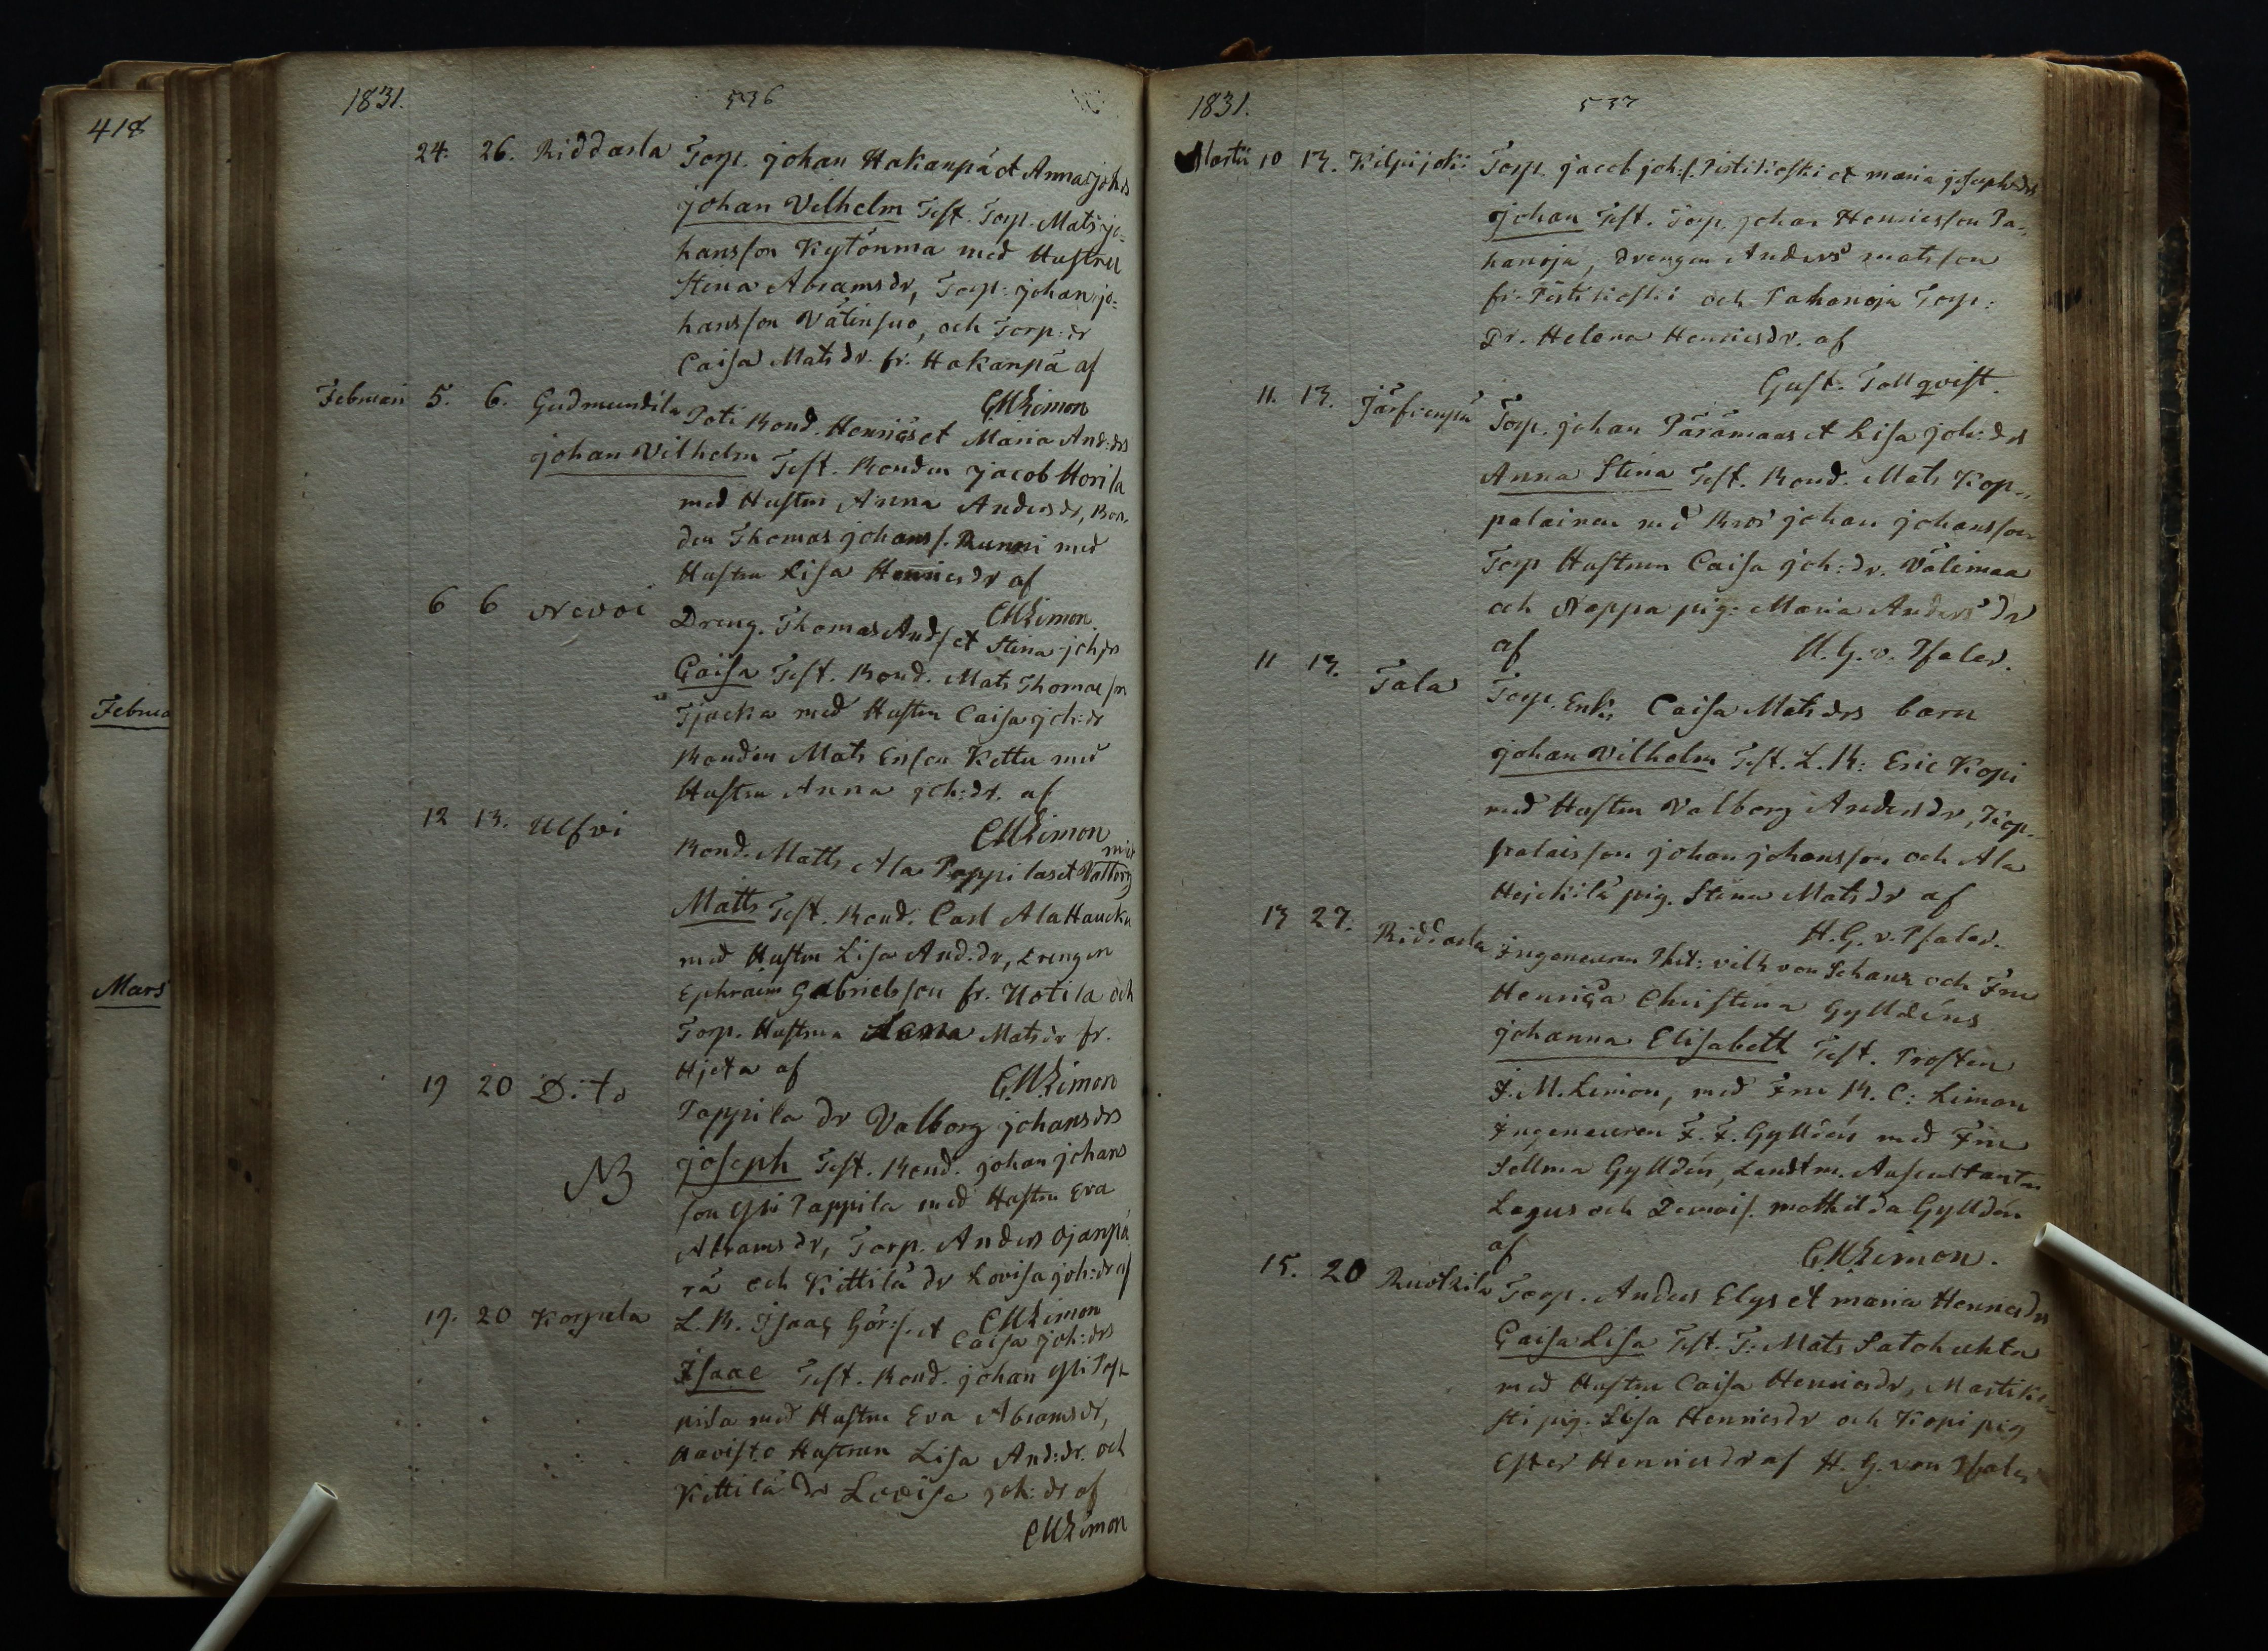 418
Februa
Mars
1831.
536
24. 26. Riddasla Torp. Johan Hakanpä et Anna Joh:ds
Johan Vilhelm Test. Torp. Mats Jo-
hansson Kytönma med Hustru
Stina Abramsdr, Torp. Johan Jo-
hansson Vätinsuo, och Torp: dr
Caisa Mats dr. fr. Hakanpä af
CMLimon
Februari 5. 6. Gudmundila Poti Bond. Henrics et Maria And:drs
Johan Vilhelm Test. Bonden Jacob Horila
med Hustru Anna Anders dr, Bon-
den Thomas Johanss. Runni med
Hustru Lisa Henricsdr af
CMLimon.
6 6 Nevoi Dreng. Thomas Ands et Stina Johds
Caisa Test. Bond. Mats Thomaesn
Tjäcka med Hustru Caisa Joh:dr
Bonden Mats Ersson Kettu med
Hustru Anna Joh:dr. af
CMLimon
12 13. Ulfvi Bond. Matts Ala Pappilas et Valborg
Matts Test. Bond. Carl Ala Haucka
med Hustru Lisa And.dr, Drengen
Ephraim Gabrielsson fr. Uotila och
Torp. Hustrun Lena Matsdr fr.
Hjeta af
CMLimon
19 20 Dito Pappila dr Valborg Johansdrs
NB Joseph Test. Bond. Johan Johans
son Yli Pappila med Hustru Eva
Abramsdr, Torp. Anders Ojanpä
rä och Kittilä dr Lovisa Joh:dr af
CMLimon
19. 20 Korpela L. B. Isaac Görs. et Caisa Joh:drs
Isaac Test. Bond. Johan Yli Pap
pila med Hustru Eva Abramsdr,
Havisto Hustrun Lisa And:dr. och
Kittilä dr Lovisa Joh:dr af
CMLimon
1831.
537
Martii 10 13. Kilpijoki Torp. Jacob Joh:s. Pirtikoski et Maria Josephsdrs
Johan Test. Torp. Johan Henricsson Pa-
hanoja, Drengen Anders Matsson
fr. Pirtikoski och Pahanoja Torp:
Dr. Helena Henricsdr. af
Gust. Tollqvist.
11. 13. Järfvenpä Torp. Johan Pärämaas et Lisa Joh:drs
Anna Stina Test. Bond. Mats Kop-
palainen med Bror Johan Johansson
Torp Hustrun Caisa Joh:dr. Välimaa
och Noppa pig: Maria Andersdr
af
H. G. v. Pfaler.
11 13. Tala Torp. Enk. Caisa Matsdrs barn
Johan Vilhelm Test. L. B: Eric Kopi
med Hustru Valborg Andersdr, Kop-
palaisson Johan Johansson och Ala
Hejckilä pig. Stina Matsdr af
H. G. v. Pfaler.
13 27. Riddasla Ingeneuren Phil: Vilh von Schanz och Fru
Henrica Christina Gylldéns
Johanna Elisabeth Test. Prosten
F. M. Limon, med Fru B. C: Limon
Ingeneuren F. F. Gylldén med Fru
Sellma Gylldén, Landtm. Auscultanten
Lagus och Demois. Mathilda Gylldén
af
CMLimon.
15. 20 Ruotzila Torp. Anders Elgs et Maria Henricsdrs
Caisa Lisa Test. T. Mats Satohuhta
med Hustru Caisa Henricsdr, Martiko-
ski pig. Lisa Henricsdr och Kopi pig
Ester Henricsdr af H. G. von Pfaler